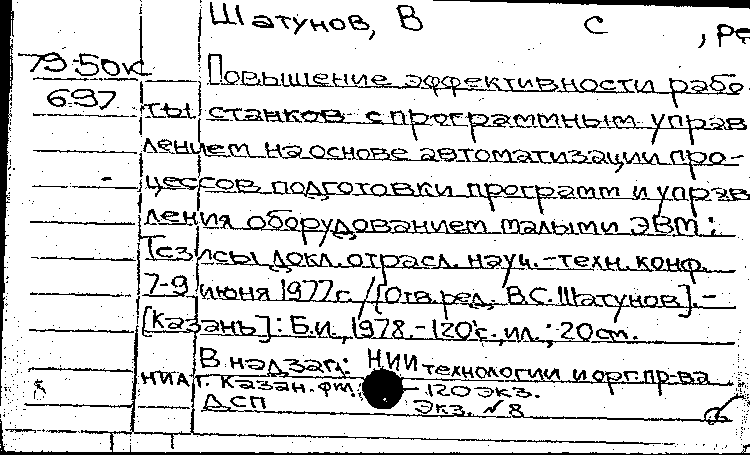 Шатунов, В С , ре
79-50к Повышение эффективности рабо-
697 ты станков с программным управ
лением на основе автоматизации про-
цессов подготовки программ и управ
ления оборудованием малыми ЭВМ:
Тезисы докл. отрасл. науч.-техн. конф.
7-9 июня 1977г. /[Отв. ред. В.С. Шатунов].-
[Казань]: Б.и., 1978.-120с., ил.; 20см.
В надзаг.: НИИ технологии и орг. пр-ва
НИАТ г. Казан. фил. — 120 экз.
ДСП Экз. №8